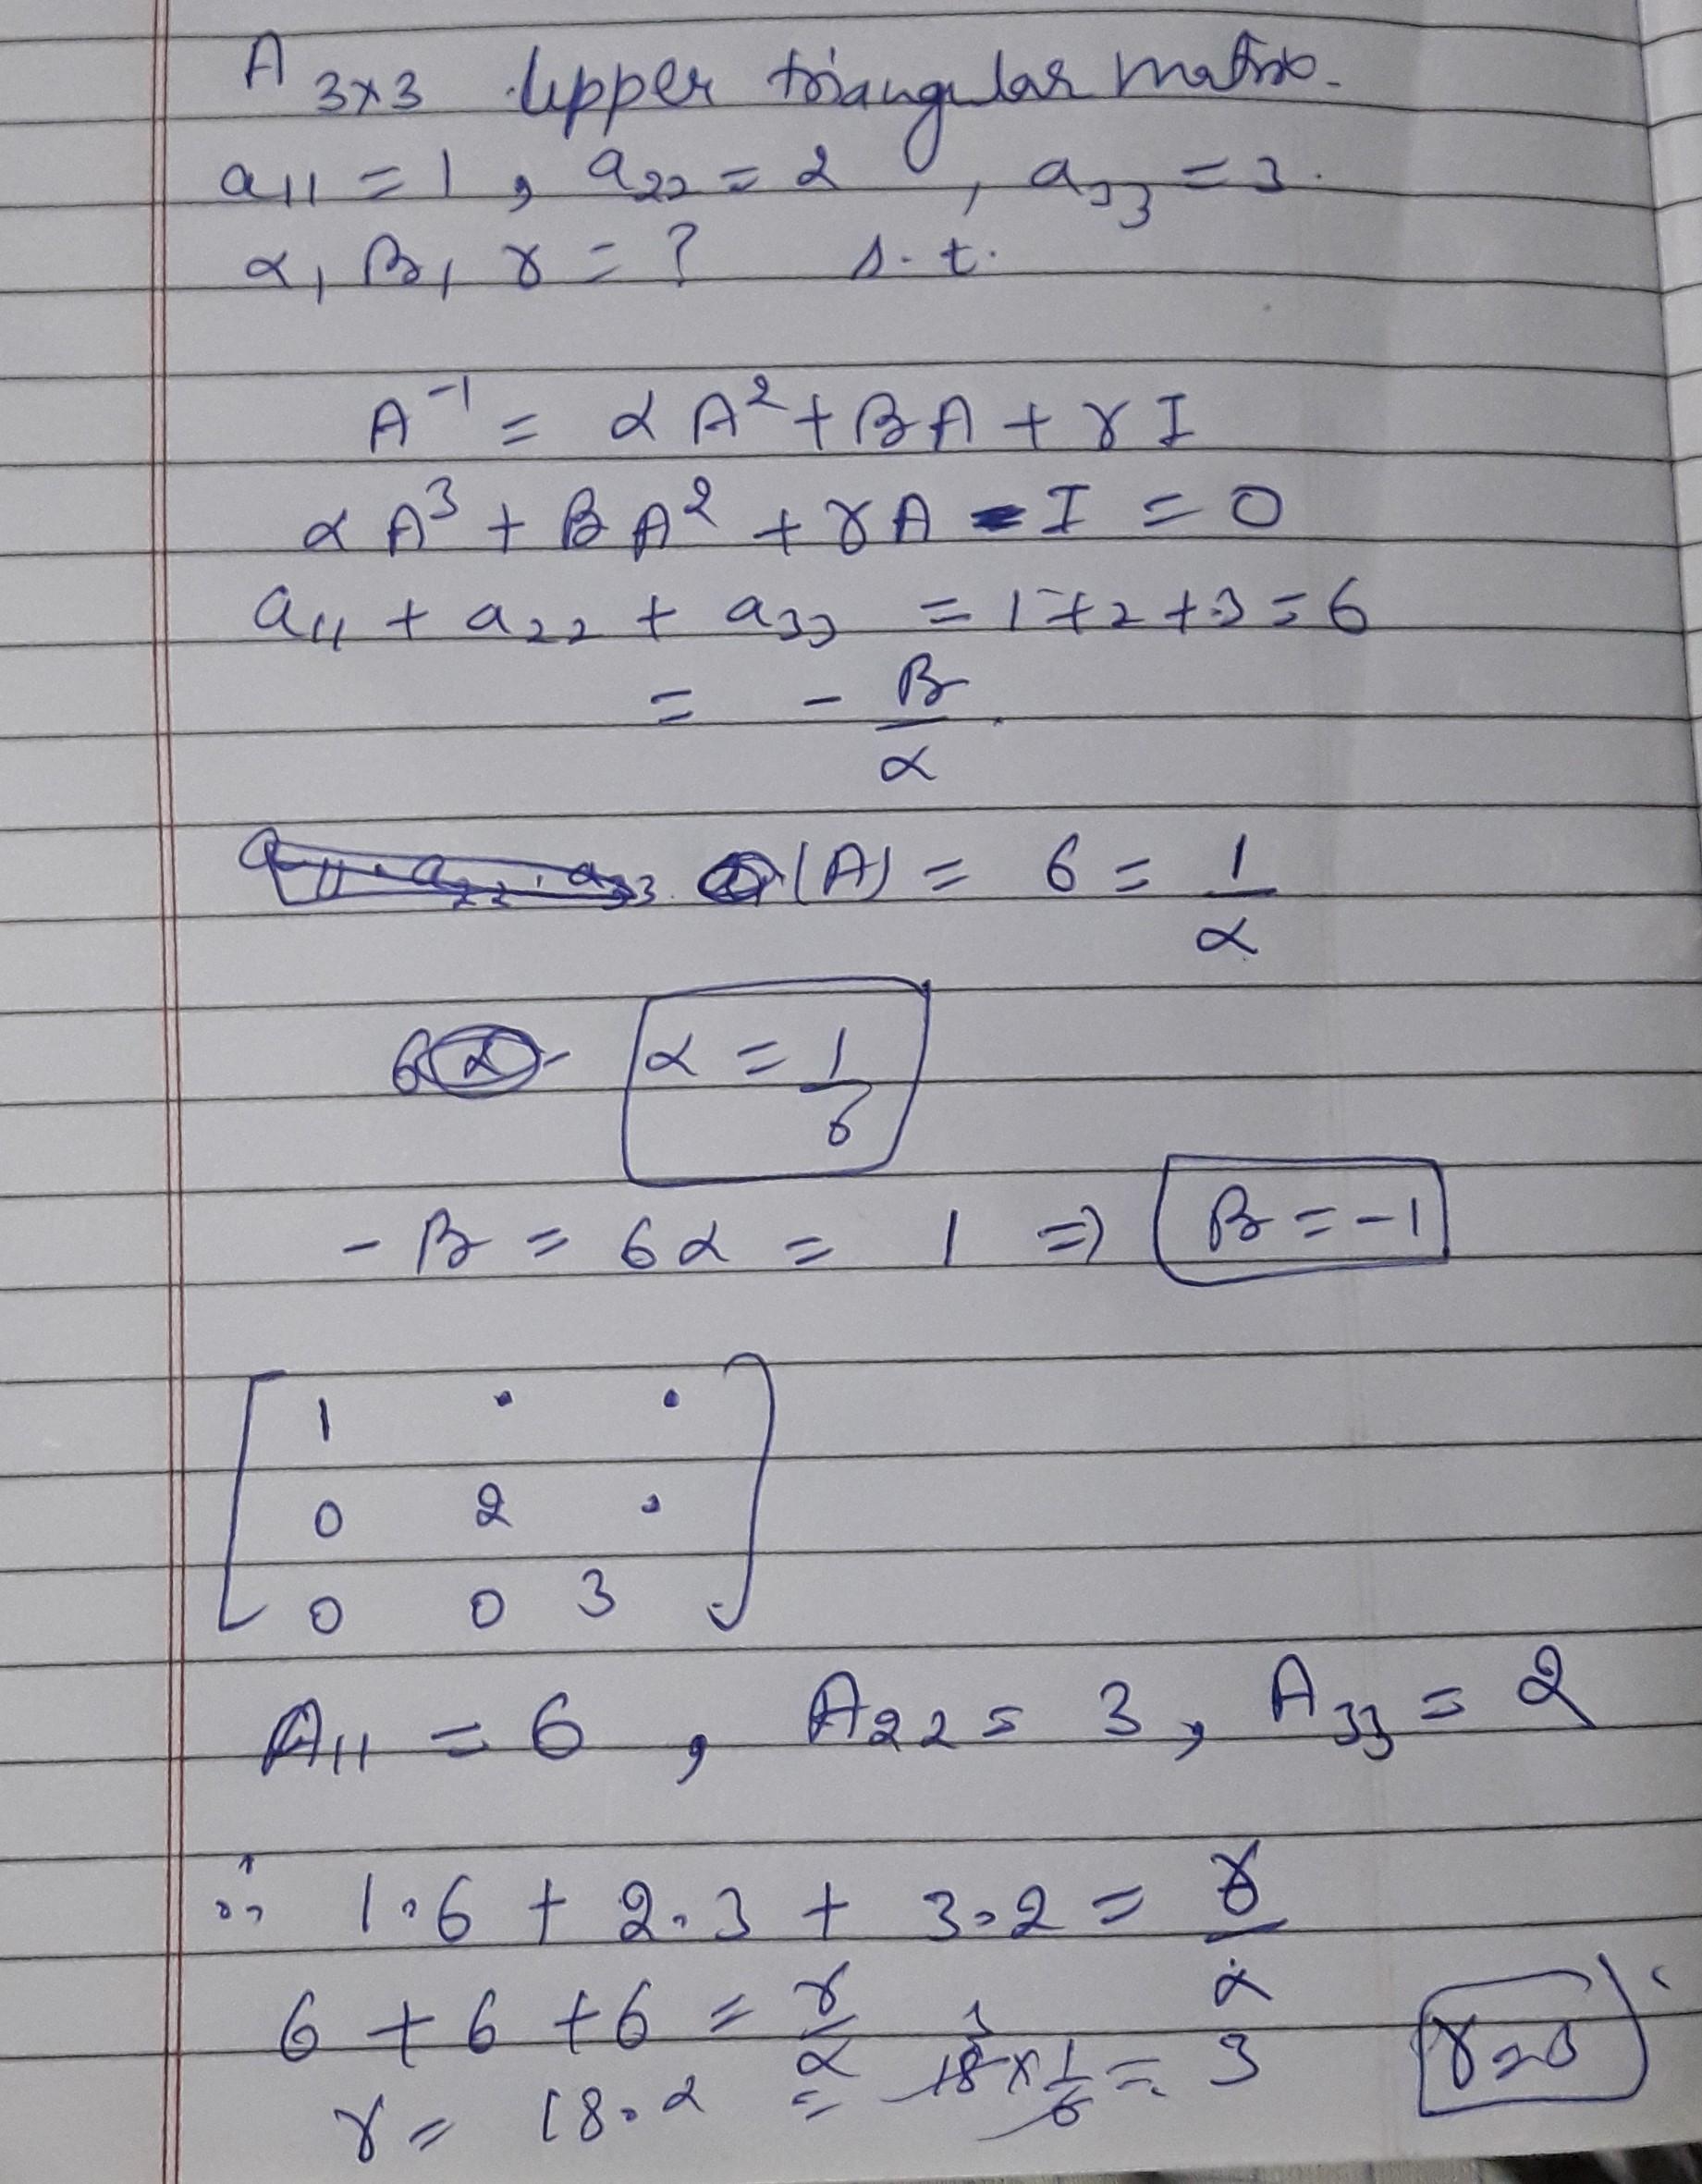 A 3×3 Upper triangular matrix.
a11 = 1 , a22 = 2 , a33 = 3.
α, β, γ = ? s.t.
A⁻¹ = α A² + β A + γ I
α A³ + β A² + γ A - I = 0
a11 + a22 + a33 = 1+2+3 = 6
= - β/α.
|A| = 6 = 1/α
6α- α = 1/6
- β = 6α = 1 ⇒ β = -1
[ 1 · ·
0 2 ·
0 0 3 ]
A11 = 6 , A22 = 3 , A33 = 2
∴ 1.6 + 2.3 + 3.2 = γ/α
6 + 6 + 6 = γ/α
γ = 18.α = 18 × 1/6 = 3